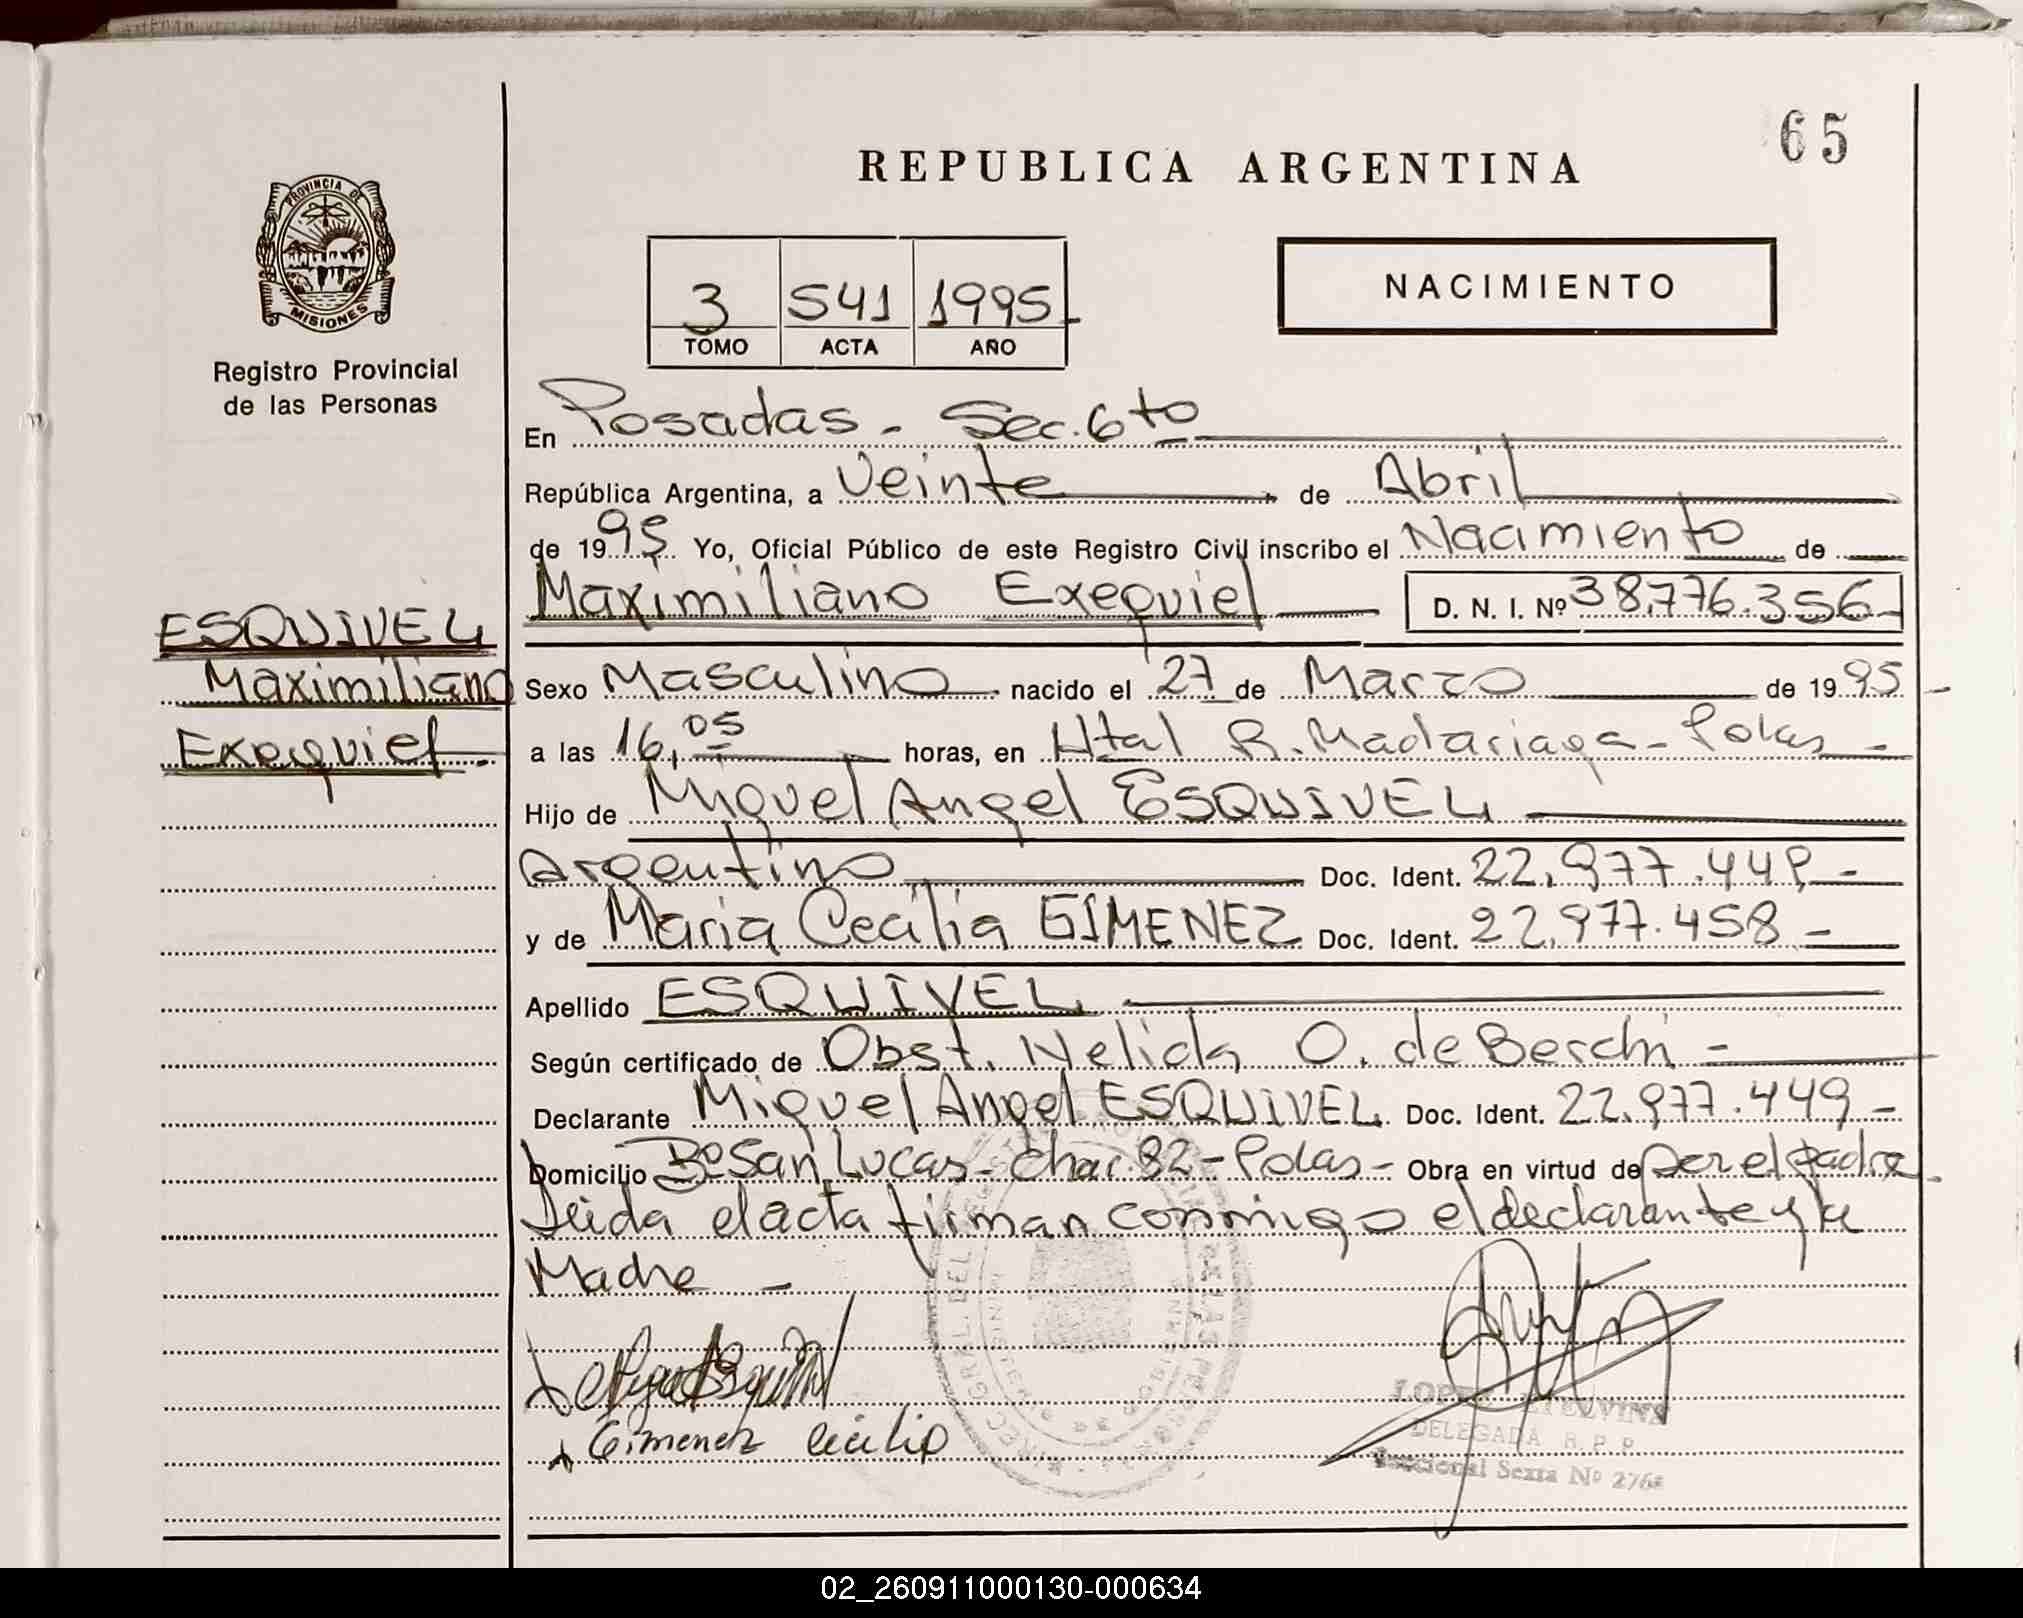 65
REPUBLICA ARGENTINA
PROVINCIA DE
MISIONES
Registro Provincial
de las Personas
3 541 1995
TOMO ACTA AÑO
NACIMIENTO
En Posadas - Sec. 6to
República Argentina, a Veinte de Abril
de 1995 Yo, Oficial Público de este Registro Civil inscribo el Nacimiento de
Maximiliano Exequiel D. N. I. Nº 38.776.356
ESQUIVEL
Maximiliano
Exequiel
Sexo Masculino nacido el 27 de Marzo de 1995
a las 16,05 horas, en Htal R. Madariaga - Pdas -
Hijo de Miguel Angel ESQUIVEL
Argentino Doc. Ident. 22.977.449 -
y de Maria Cecilia GIMENEZ Doc. Ident. 22.977.458 -
Apellido ESQUIVEL
Según certificado de Obst. Nelida O. de Beschi -
Declarante Miguel Angel ESQUIVEL Doc. Ident. 22.977.449 -
Domicilio Bº San Lucas - Chac. 82 - Pdas - Obra en virtud de ser el padre
Leida el acta firman conmigo el declarante y la
Madre -
Gimenez Cecilia
DELEGADA R. P. P.
Seccional Sexta Nº 276
02_260911000130-000634